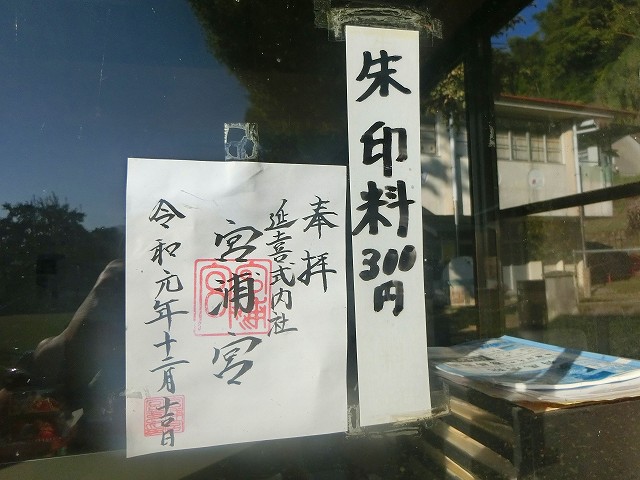 朱印料300円
奉拝
延喜式内社
宮浦宮
令和元年十二月十日